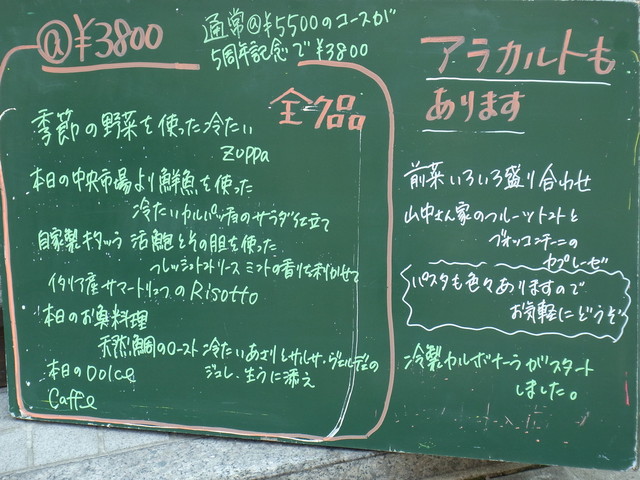 @¥3800
通常@¥5500のコースが
5周年記念で¥3800
全7品
季節の野菜を使った冷たい
Zuppa
本日の中央市場より鮮魚を使った
冷たいカルパッチョのサラダ仕立て
自家製キタッラ 活鮑とその肝を使った
フレッシュトマトソース ミントの香りを利かせて
イタリア産サマートリュフのRisotto
本日のお魚料理
天然鯛のロースト 冷たいあさりとサルサ・ヴェルデの
ジュレ・生うに添え
本日のDolce
Caffe
アラカルトも
あります
前菜いろいろ盛り合わせ
山中さん家のフルーツトマトと
ブォッコンチーニの
カプレーゼ
パスタも色々ありますので
お気軽にどうぞ
冷製カルボナーラがスタート
しました。